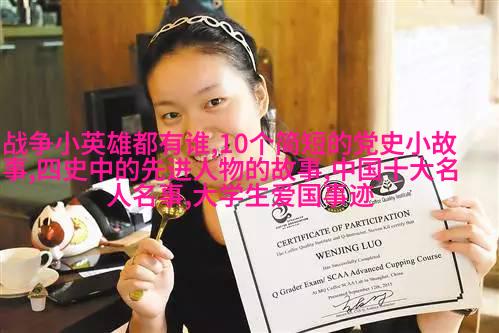 战争小英雄都有谁,10个简短的党史小故
事,四史中的先进人物的故事,中国十大名
人名事,大学生爱国事迹
Coffee Quality Institute
CERTIFICATE OF PARTICIPATION
The Coffee Quality Institute and Q-Instructor, Steven Kil certify that
WENJING LUO
Has Successfully Completed
Q Grader Exam/ SCAA Advanced Cupping Course
At MQ Coffee SCAA Lab in Shanghai, China
Presented September 12th, 2015